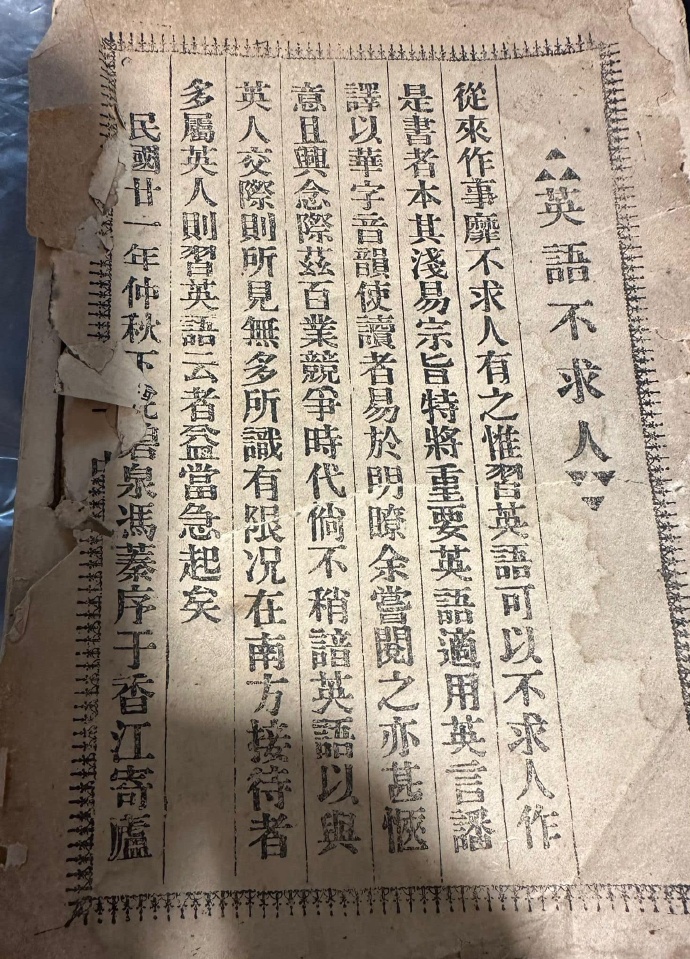 英語不求人
從來作事靡不求人有之惟習英語可以不求人作
是書者本其淺易宗旨特將重要英語適用英言譒
譯以華字音韻使讀者易於明瞭余嘗閱之亦甚愜
意且興念際茲百業競爭時代倘不稍諳英語以與
英人交際則所見無多所識有限况在南方接待者
多屬英人則習英語云者益當急起矣
民國廿一年仲秋下 碧泉馮蓁序于香江寄廬